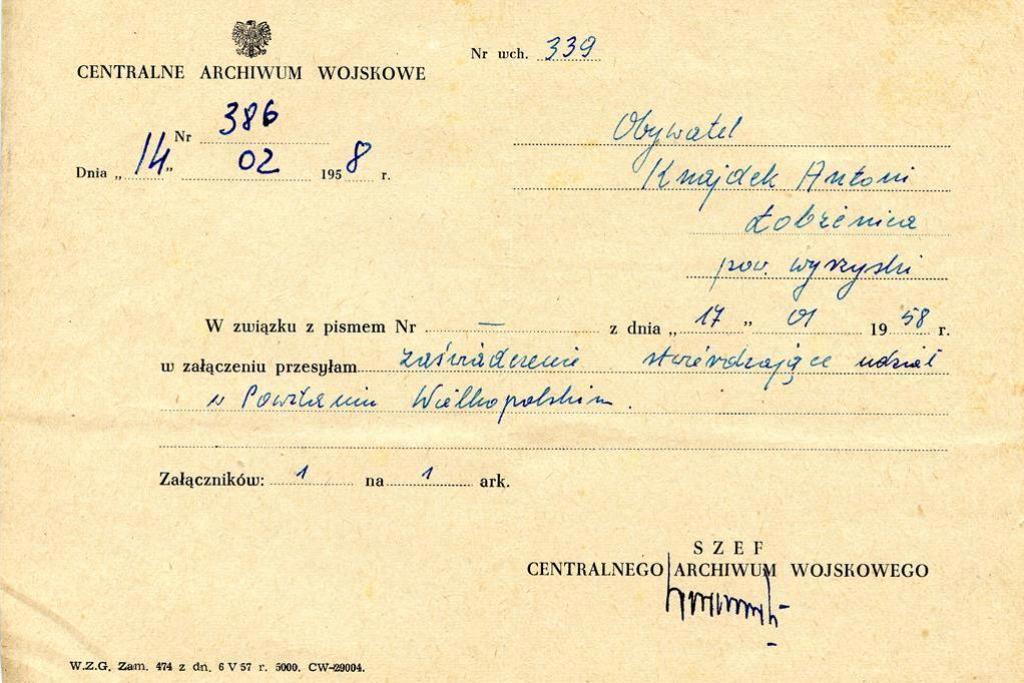 CENTRALNE ARCHIWUM WOJSKOWE
Nr wch. 339
Nr 386
Dnia „14" 02 1958 r.
Obywatel
Knajdek Antoni
Łobżenica
pow. wyrzyski
W związku z pismem Nr — z dnia „17" 01 1958 r.
w załączeniu przesyłam zaświadczenie stwierdzające udział
w Powstaniu Wielkopolskim.
Załączników: 1 na 1 ark.
SZEF
CENTRALNEGO ARCHIWUM WOJSKOWEGO
W.Z.G. Zam. 474 z dn. 6 V 57 r. 5000. CW-29004.